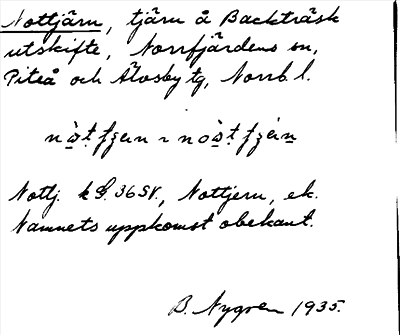 Nottjärn, tjärn å Backträsk
utskifte, Norrfjärdens sn,
Piteå och Älvsby tg, Norrb. l.
Nottj. k 36 SV., Nottjern, ek.
Namnets uppkomst obekant.
B. Nygren 1935.